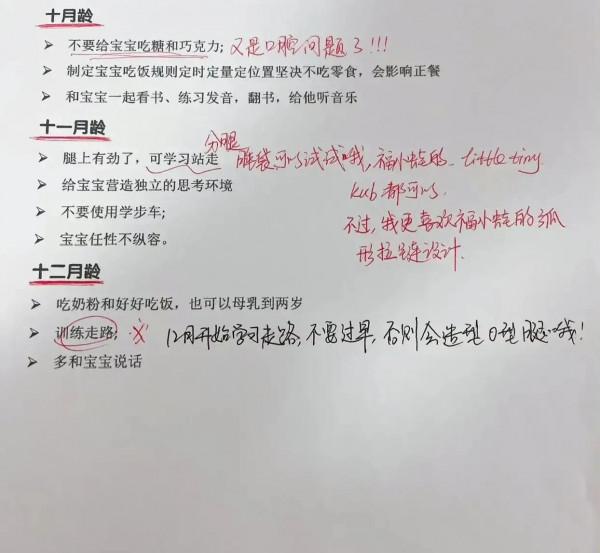 十月龄
➢ 不要给宝宝吃糖和巧克力; 又是口腔问题了!!!
➢ 制定宝宝吃饭规则定时定量定位置坚决不吃零食，会影响正餐
➢ 和宝宝一起看书、练习发音，翻书，给他听音乐
十一月龄
分腿
➢ 腿上有劲了，可学习站走 睡袋可以试试哦，福小蛙的、little tiny
➢ 给宝宝营造独立的思考环境 kub都可以.
➢ 不要使用学步车; 不过，我更喜欢福小蛙的弧
➢ 宝宝任性不纵容。 形拉链设计.
十二月龄
➢ 吃奶粉和好好吃饭，也可以母乳到两岁
➢ 训练走路; 12月开始学习走路，不要过早，否则会造型O型腿哦!
➢ 多和宝宝说话